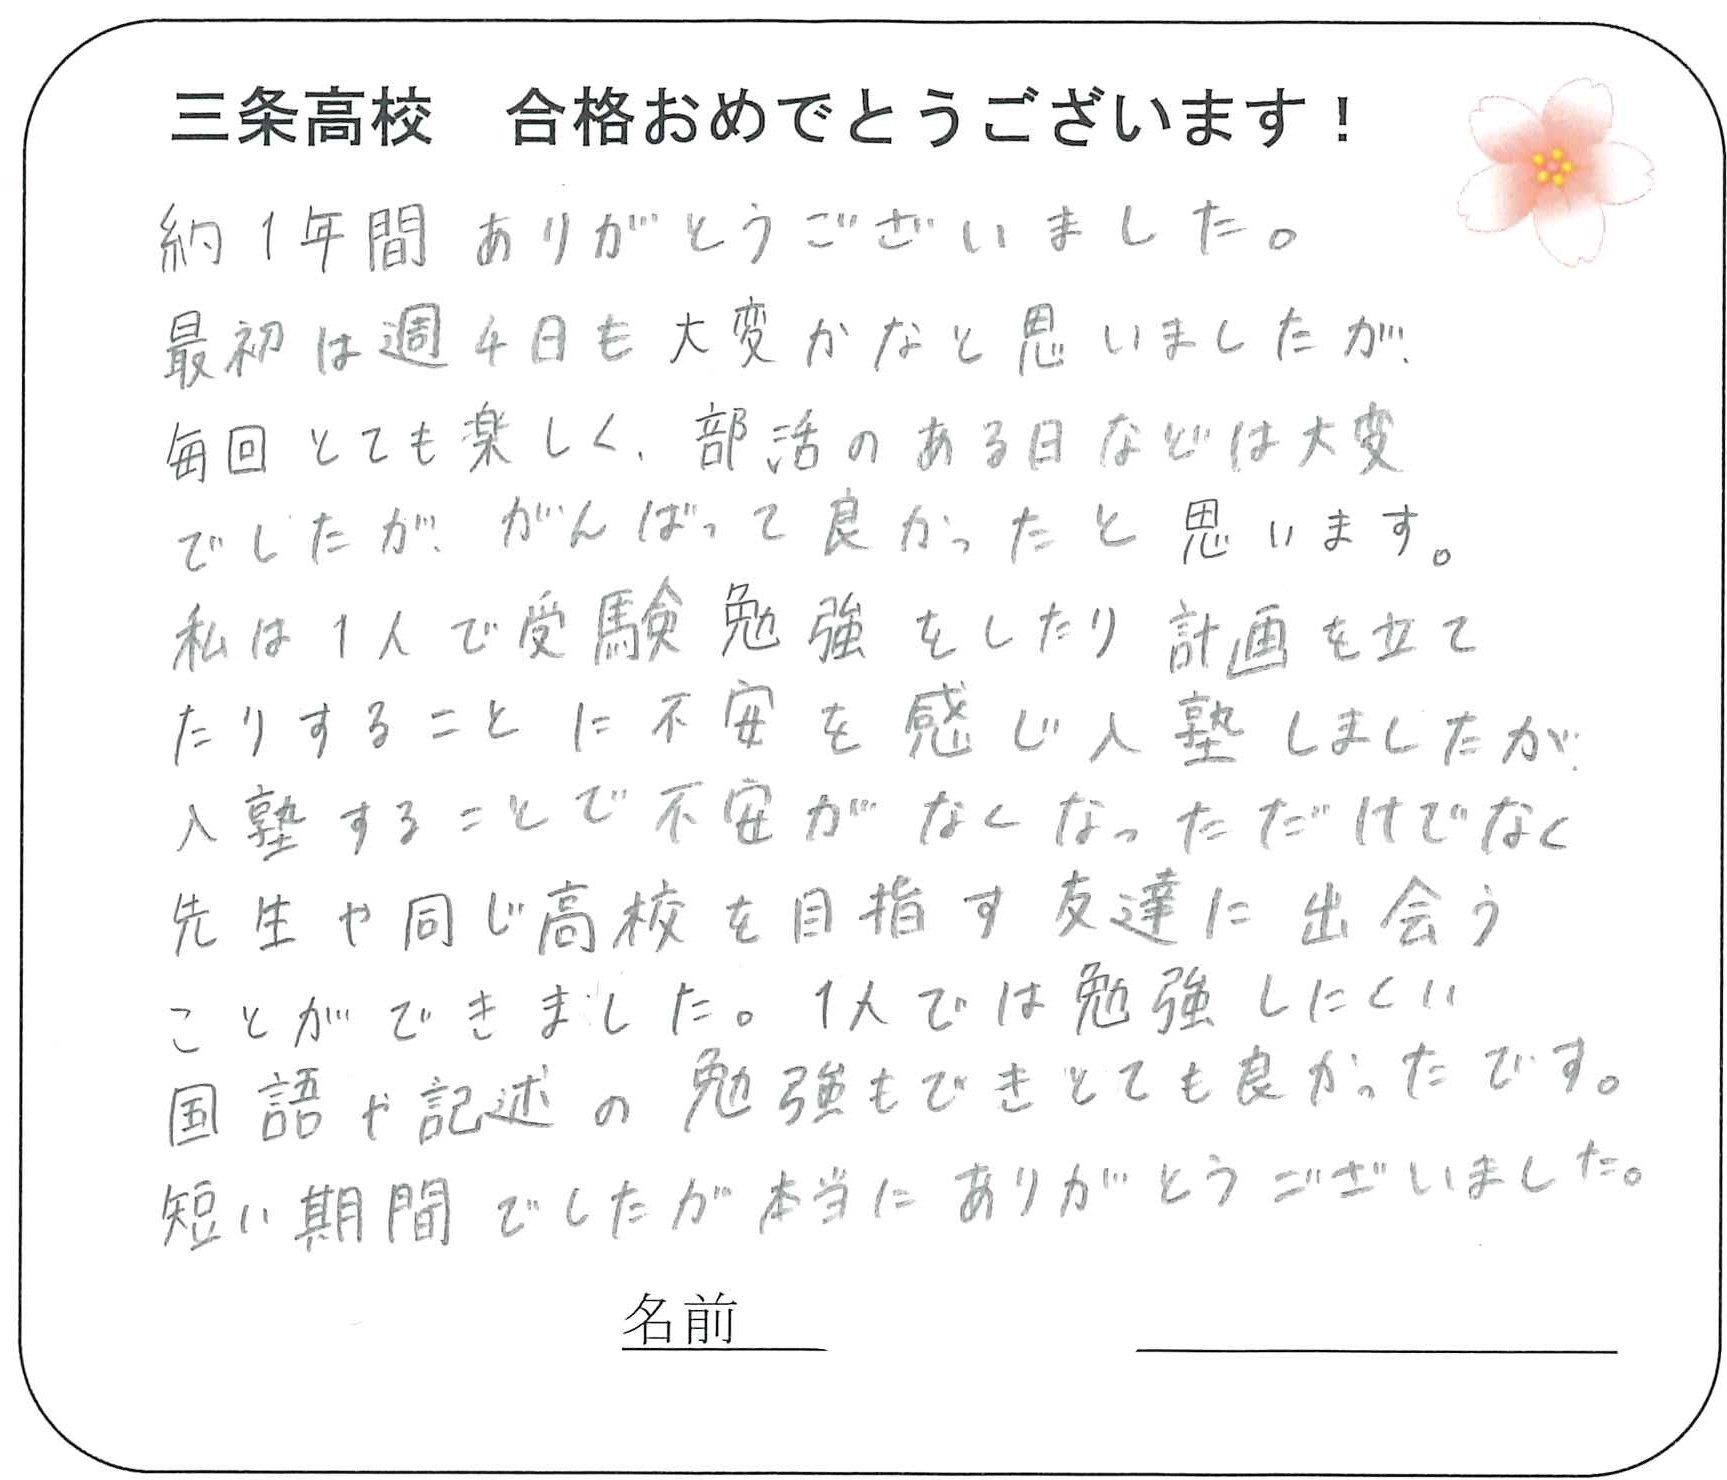 三条高校　合格おめでとうございます！
約1年間 ありがとうございました。
最初は週4日も大変かなと思いましたが、
毎回とても楽しく、部活のある日などは大変
でしたが、がんばって良かったと思います。
私は1人で受験勉強をしたり計画を立て
たりすることに不安を感じ入塾しましたが、
入塾することで不安がなくなっただけでなく
先生や同じ高校を目指す友達に出会う
ことができました。1人では勉強しにくい
国語や記述の勉強もできとても良かったです。
短い期間でしたが本当にありがとうございました。
名前